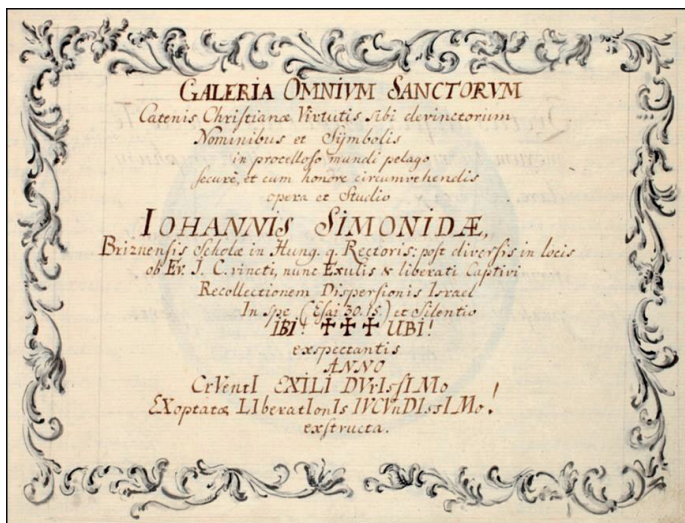 GALERIA OMNIVM SANCTORVM
Catenis Christianæ Virtutis sibi devinctorium
Nominibus et Symbolis
in procelloso mundi pelago
securè, et cum honore circumvehendis
opera et Studio
IOHANNIS SIMONIDÆ,
Briznensis Scholæ in Hung. q. Rectoris: post diversis in locis
ob Ev. J. C. vincti, nunc Exulis & liberati Captivi
Recollectionem Dispersionis Israel
In spe (Esai 30. 15.) et Silentio
IBI! ✝✝✝ UBI!
exspectantis
ANNO
CrVentI EXILI DVrIssIMo
EXoptatæ LIberatIonIs IVCVnDIssIMo!
exstructa.